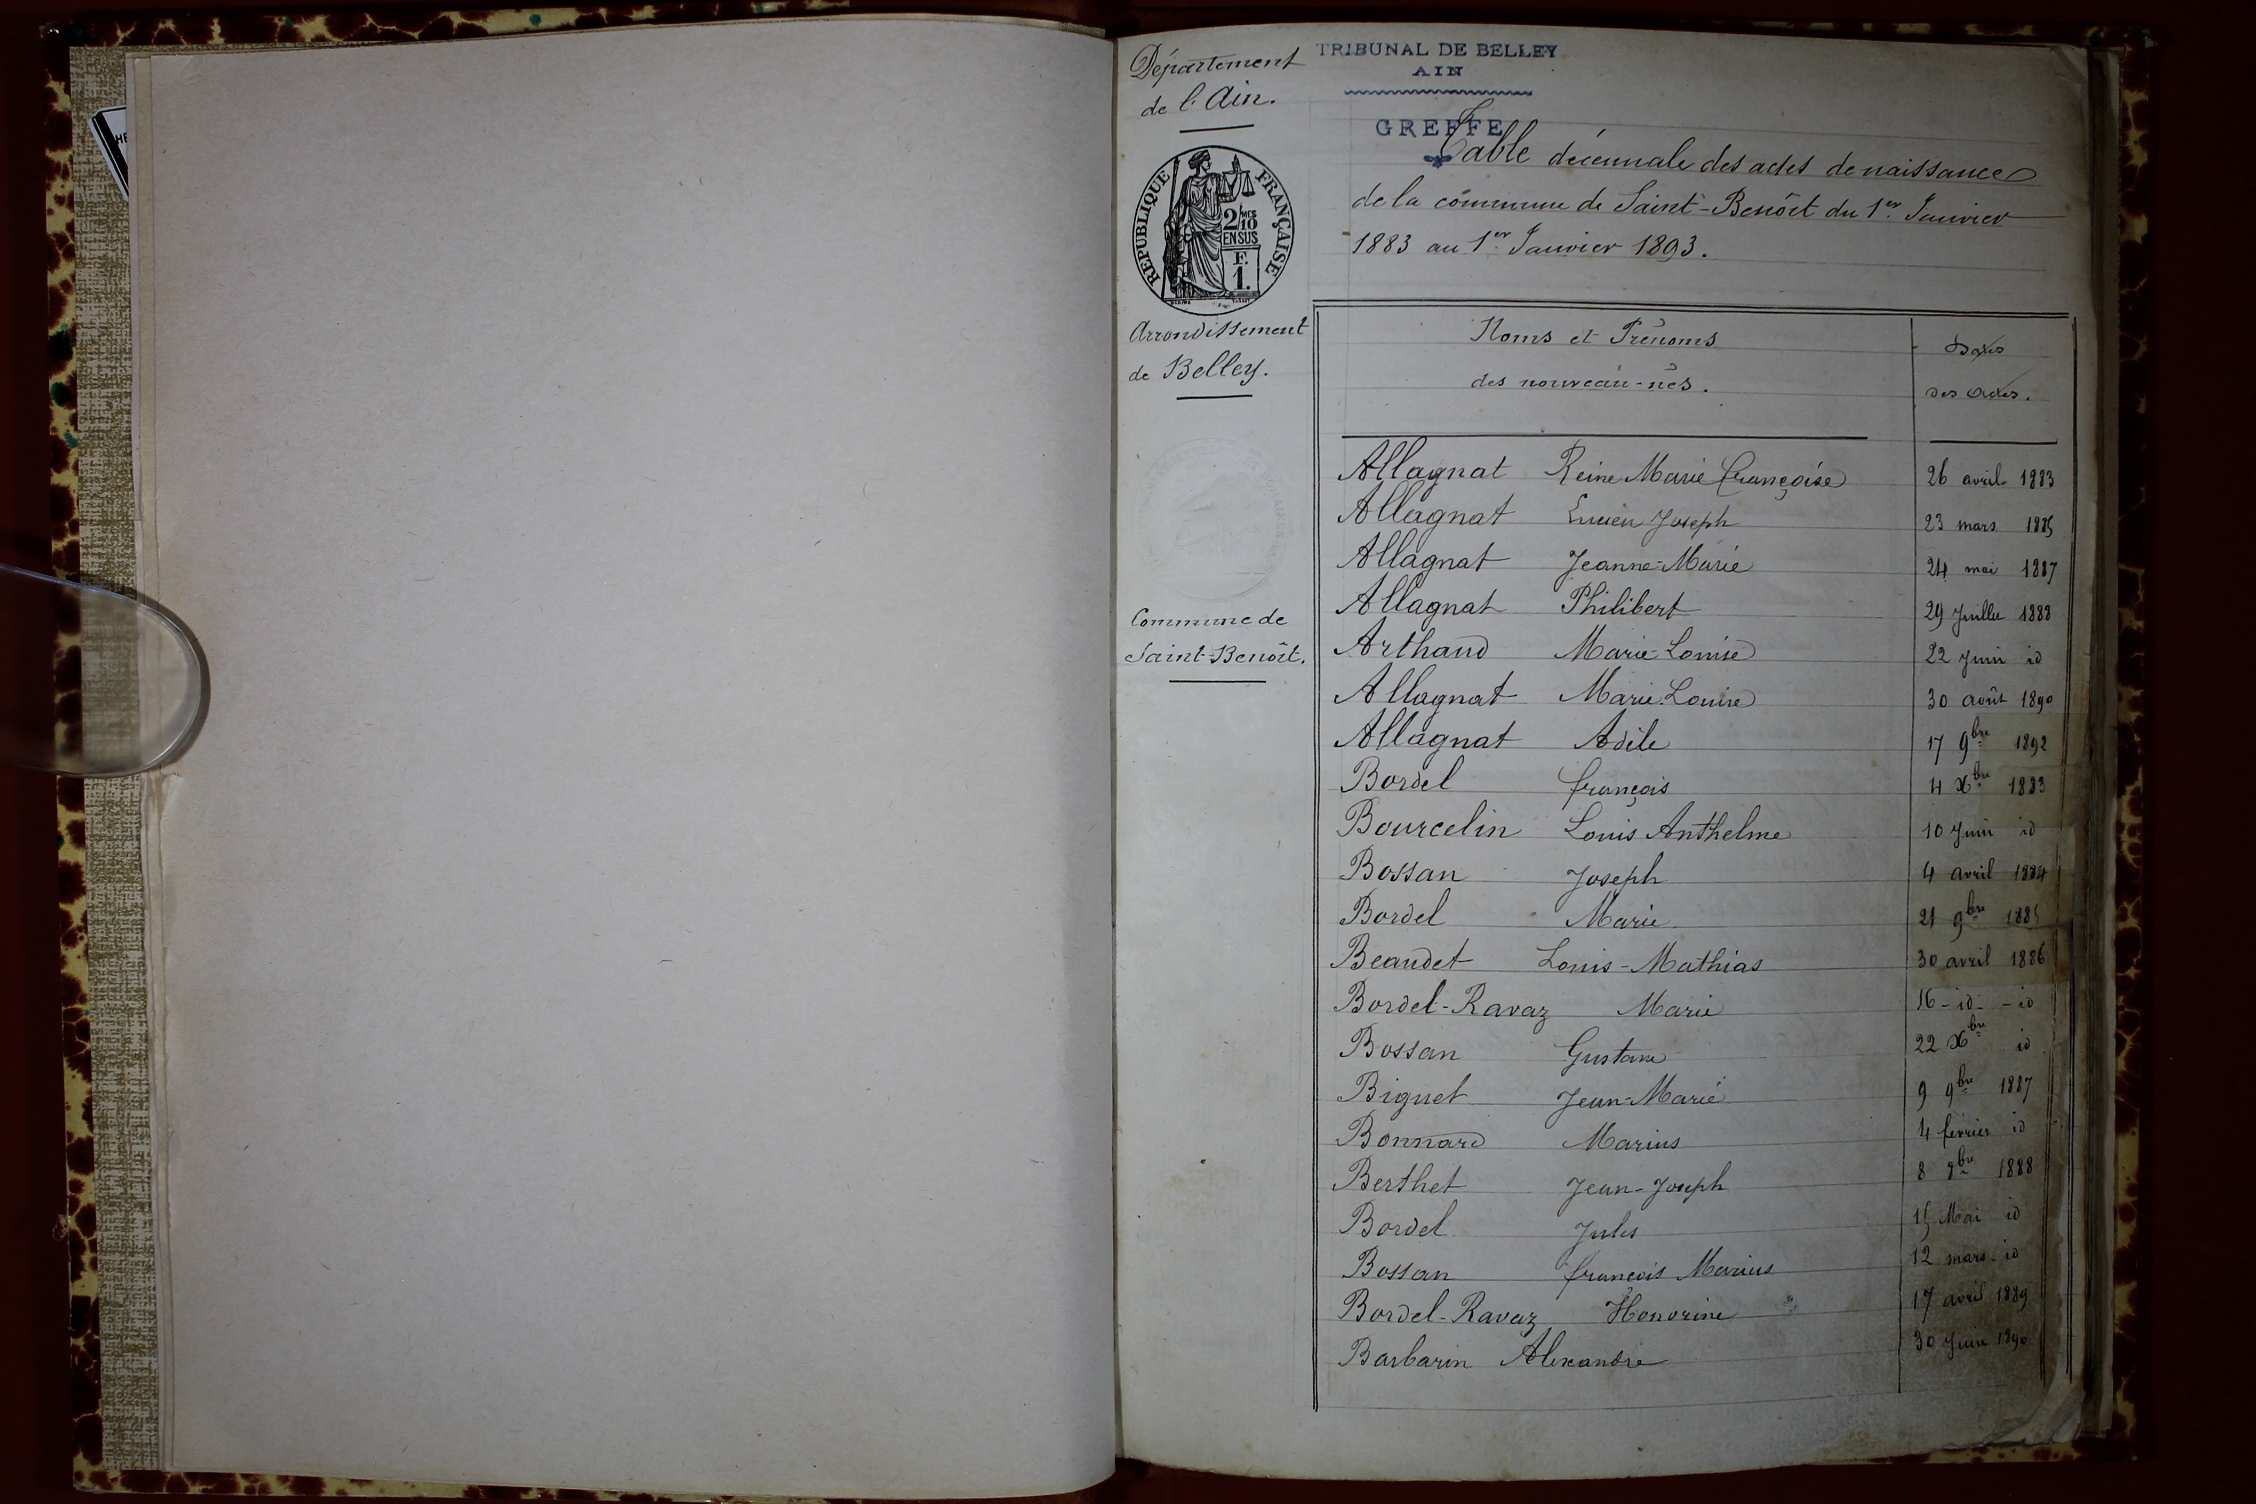 TRIBUNAL DE BELLEY
AIN
GREFFE
Département
de l'Ain.
RÉPUBLIQUE FRANÇAISE
2 MES
10
EN SUS
F.
1.
Arrondissement
de Belley.
Commune de
Saint-Benoît.
Table décennale des actes de naissances
de la commune de Saint-Benoît du 1er Janvier
1883 au 1er Janvier 1893.
Noms et Prénoms
des nouveau-nés.
Dates
des Actes.
Allagnat Reine Marie Françoise 26 avril 1883
Allagnat Lucien Joseph 23 mars 1885
Allagnat Jeanne-Marie 24 mai 1887
Allagnat Philibert 29 Juillet 1888
Arthaud Marie-Louise 22 Juin id
Allagnat Marie-Louise 30 août 1890
Allagnat Adèle 17 9bre 1892
Bordel François 4 Xbre 1883
Bourcelin Louis Anthelme 10 Juin id
Bossan Joseph 4 avril 1884
Bordel Marie 21 9bre 1885
Beaudet Louis-Mathias 30 avril 1886
Bordel-Ravaz Marie 16 - id - - id
Bossan Gustave 22 Xbre id
Biguet Jean-Marie 9 9bre 1887
Bonnard Marius 4 février id
Berthet Jean-Joseph 8 8bre 1888
Bordel Jules 15 Mai id
Bossan François Marius 12 mars - id
Bordel-Ravaz Honorine 17 avril 1889
Barbarin Alexandre 30 Juin 1890